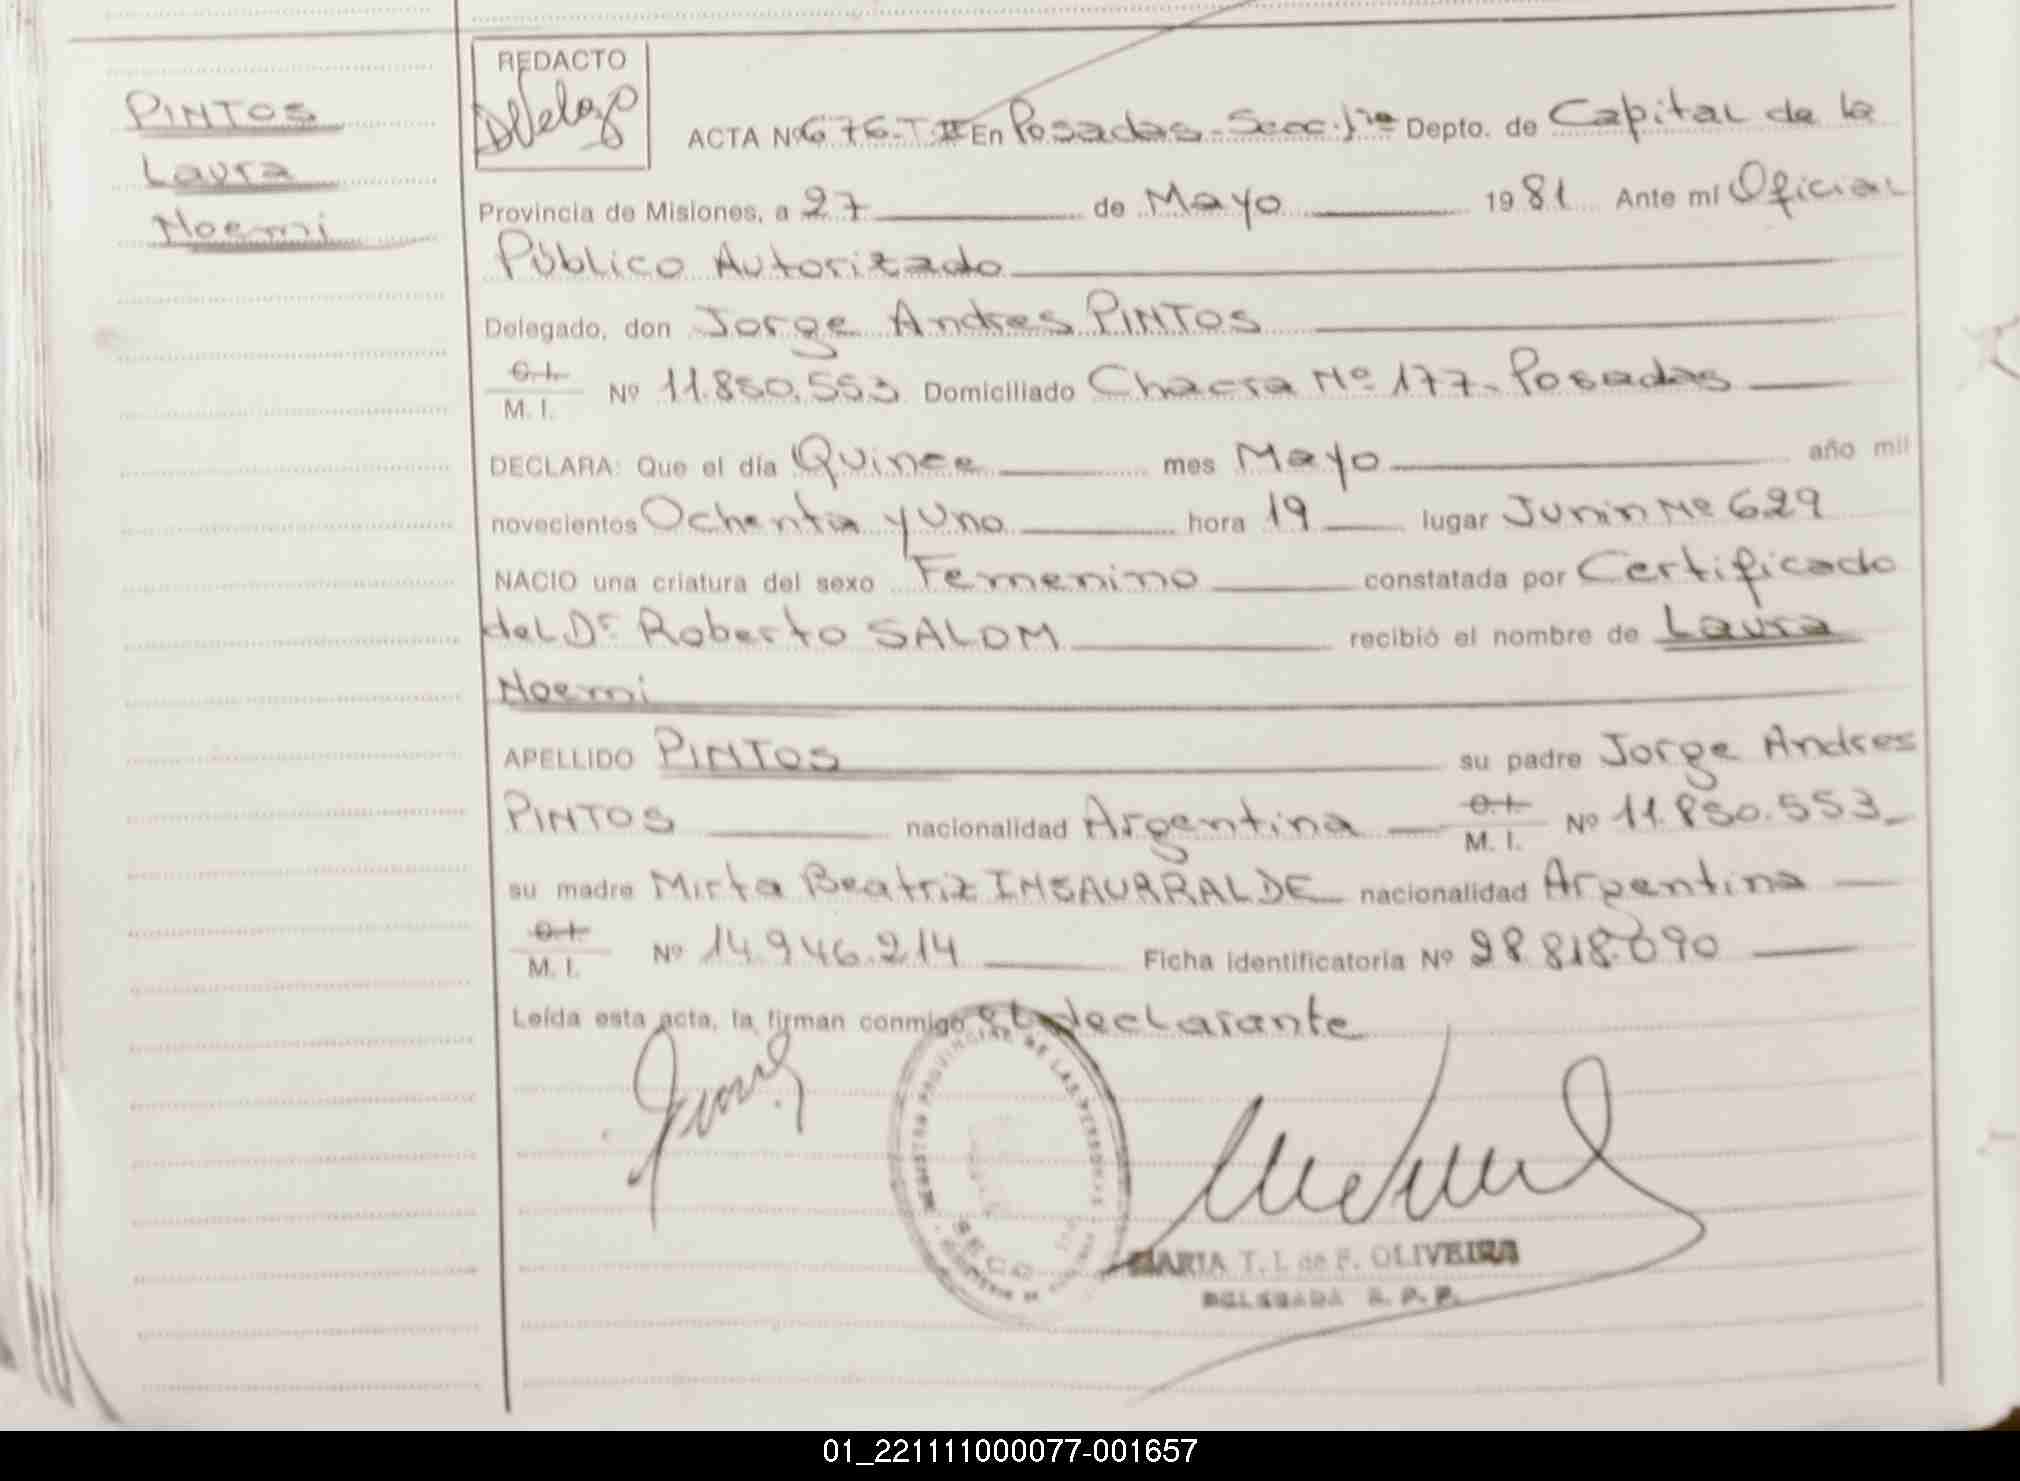 PINTOS
Laura
Noemi
REDACTO
ACTA Nº 676-T II En Posadas-Secc. 1ra Depto. de Capital de la
Provincia de Misiones, a 27 de Mayo 1981 Ante mí Oficial
Público Autorizado
Delegado, don Jorge Andres PINTOS
C.I.
M. I. Nº 11.850.553 Domiciliado Chacra Nº 177-Posadas
DECLARA: Que el día Quince mes Mayo año mil
novecientos Ochenta y Uno hora 19 lugar Junin Nº 629
NACIO una criatura del sexo Femenino constatada por Certificado
del Dr. Roberto SALOM recibió el nombre de Laura
Noemi
APELLIDO PINTOS su padre Jorge Andres
PINTOS nacionalidad Argentina C.I.
M. I. Nº 11.850.553
su madre Mirta Beatriz INSAURRALDE nacionalidad Argentina
C.I.
M. I. Nº 14.946.214 Ficha identificatoria Nº 28.818.090
Leída esta acta, la firman conmigo el declarante
REGISTRO PROVINCIAL DE LAS PERSONAS
MARIA T. I. de F. OLIVEIRA
DELEGADA R. P. P.
01_221111000077-001657